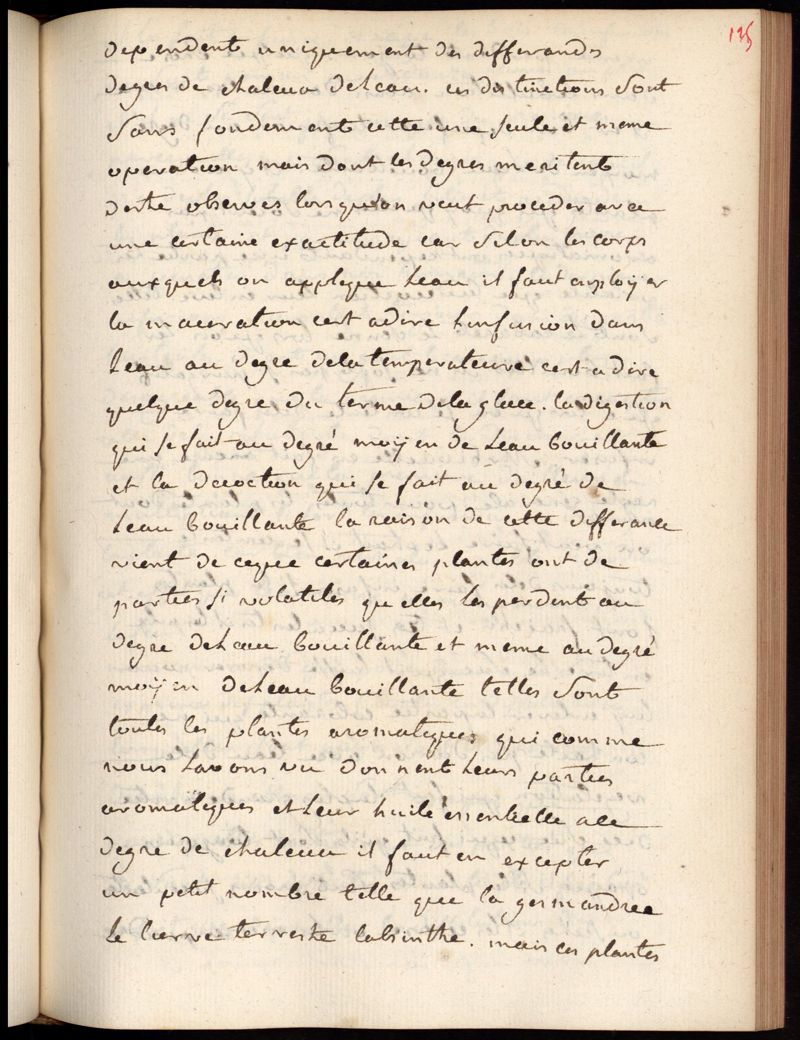 125
dependent uniquement des differands
degres de chaleur deleau. ces distinctions sont
sans fondement cette une seule et meme
operation mais dont les degres meritent
destre observes lorsqu'on veut proceder avec
une certaine exactitude car selon les corps
auxquels on applique leau il faut employer
la maceration cest adire linfusion dans
leau au degre delatemperateure cest adire
quelque degre du terme dela glace. la digestion
qui se fait au degré moyen de leau bouillante
et la decoction qui se fait au degré de
leau bouillante la raison de cette differance
vient de ceque certaines plantes ont de
parties si volatiles quelles les perdent au
degre deleau bouillante et meme au degré
moyen deleau bouillante telles sont
toutes les plantes aromatiques qui comme
nous lavons vu donnent leurs parties
aromatiques et leur huile essentielle ace
degre de chaleur il faut en excepter
un petit nombre telle que la germandree
le lierre terrestre labsinthe. mais ces plantes